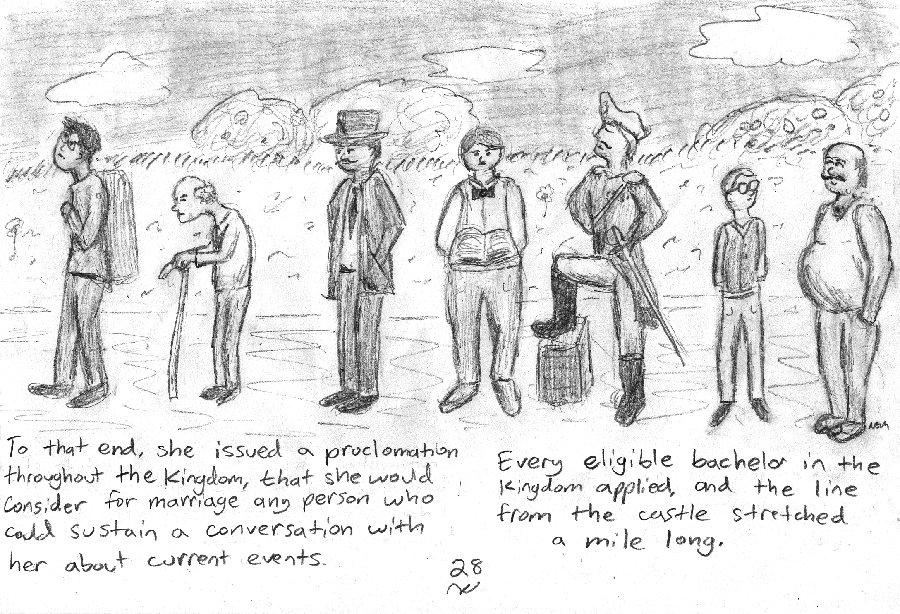 To that end, she issued a proclomation
throughout the kingdom, that she would
consider for marriage any person who
could sustain a conversation with
her about current events.
Every eligible bachelor in the
kingdom applied, and the line
from the castle stretched
a mile long.
28